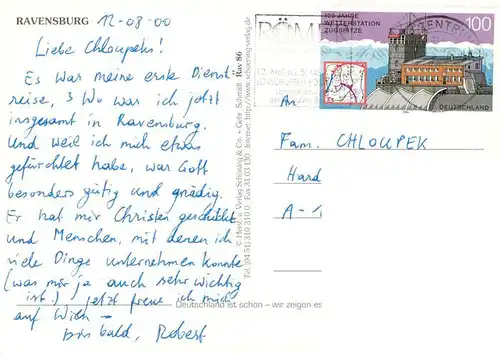 RAVENSBURG
12-08-00
Liebe Chloupeks!
Es war meine erste Dienst-
reise, 3 Wo war ich jetzt
insgesamt in Ravensburg.
Und weil ich mich etwas
gefürchtet habe, war Gott
besonders gütig und gnädig.
Er hat mir Christen geschickt
und Menschen, mit denen ich
viele Dinge unternehmen konnte
(was mir ja auch sehr wichtig
ist.) Jetzt freue ich mich
auf Wien –
bis bald, Robert
© Herst. u. Verlag Schöning & Co. - Gebr. Schmidt Rav. 86
Tel. (04 51) 310 310 Fax 31 03 130 Internet: http://www.schoening-verlag.de
Deutschland ist schön – wir zeigen es
100 JAHRE
WETTERSTATION
ZUGSPITZE
100
DEUTSCHLAND
An
Fam. CHLOUPEK
Hard
A-1